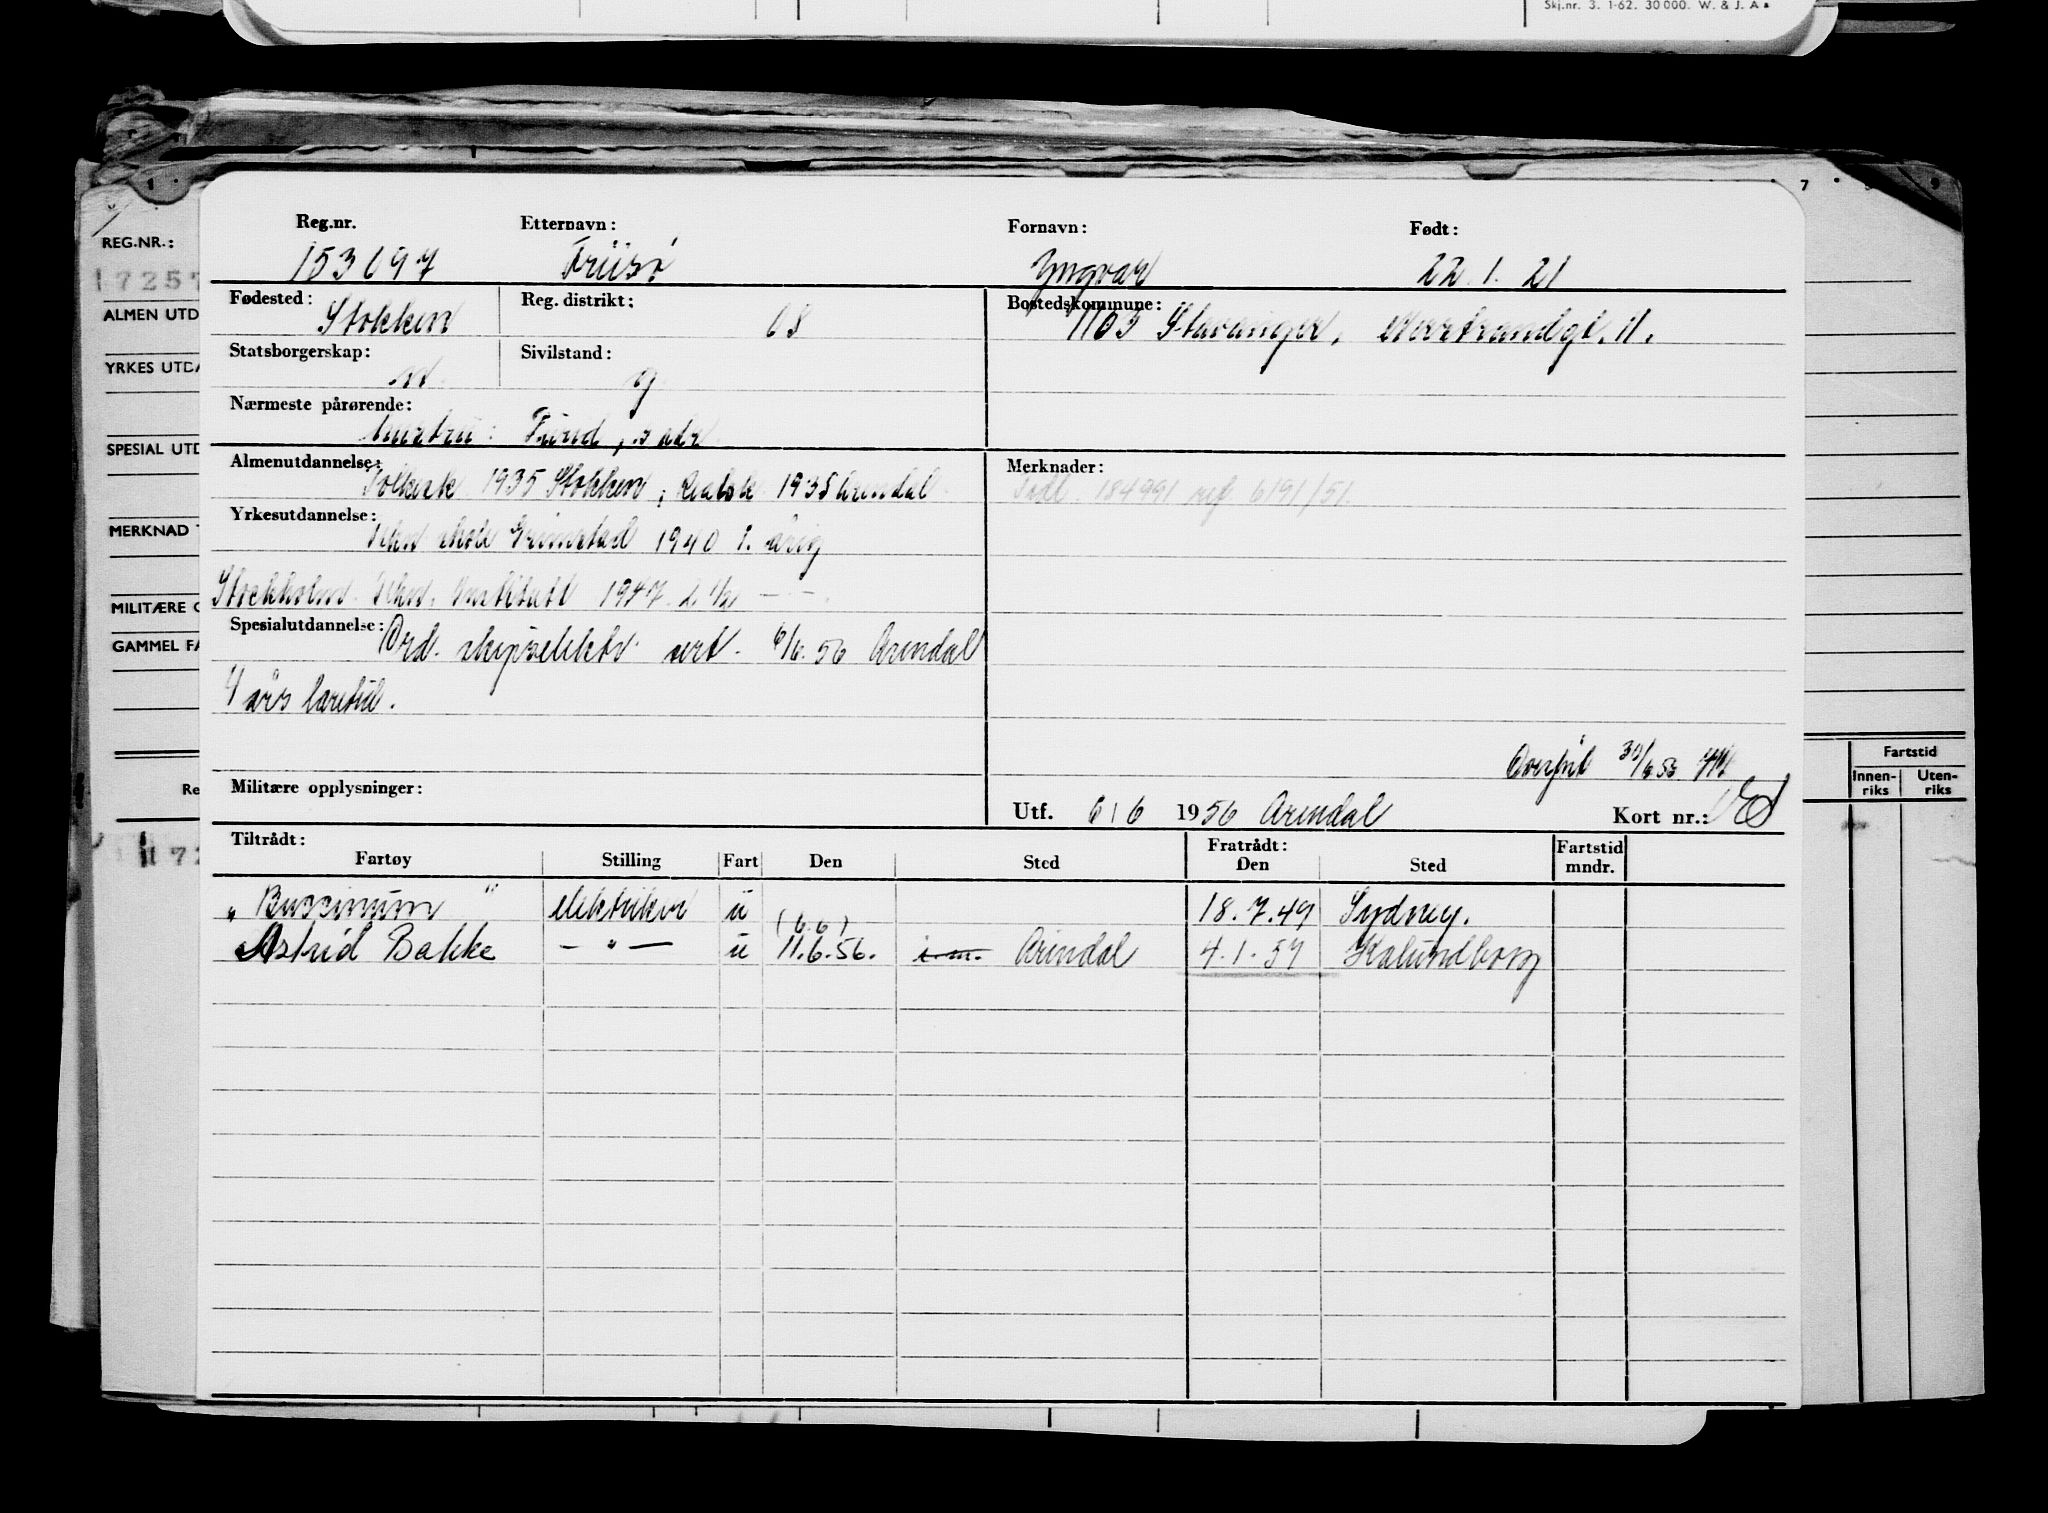 Skj.nr. 3. 1-62. 30 000. W. & J. A s
7 9
REG.NR.:
1725
ALMEN UTD
YRKES UTDA
SPESIAL UTD
MERKNAD T
MILITÆRE O
GAMMEL FA
Re
172
Fartstid
Innen-riks Uten-riks
Reg.nr. Etternavn: Fornavn: Født:
153097 Friisø Yngvar 22.1.21
Fødested: Stokken Reg. distrikt: 08 Bostedskommune: 1103 Stavanger, 11.
Statsborgerskap: n. Sivilstand: g.
Nærmeste pårørende:
hustru: s adr
Almenutdannelse: Folkesk 1935 Stokken, Realsk 1938 Arendal Merknader:
Tidl. 184991 ref 6191/51.
Yrkesutdannelse: Tekn skole Grimstad 1940 1. årig
Stockholm Tekn. Institutt 1947 2 1/2 — " —.
Spesialutdannelse: Ord. skipselektr. sert. 6/6.56 Arendal
4 års læretid.
Overført 30/6 56
Militære opplysninger: Utf. 6/6 1956 Arendal Kort nr.:
Tiltrådt: Fratrådt: Fartstid mndr.
Fartøy Stilling Fart Den Sted Den Sted
"Buccinum" elektriker u 18.7.49 Sydney.
(6.6)
Astrid Bakke — " — u 11.6.56. Arendal 4.1.57 Kalundborg